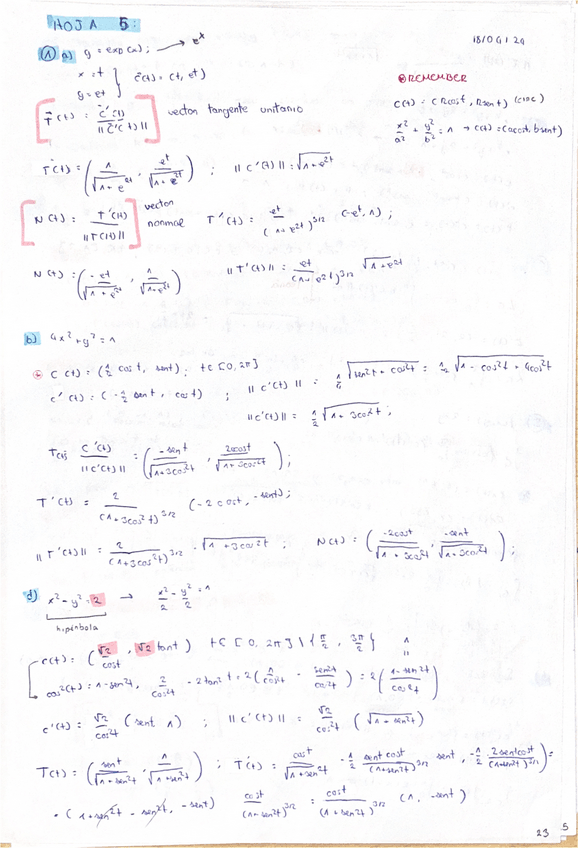 HOJA 5:
18/04/24
① a) y = exp(x); → eˣ
x = t } c(t) = (t, eᵗ)
y = eᵗ
REMEMBER
c(t) = (Rcost, Rsent) (circ)
x²/a² + y²/b² = 1 → c(t) = (acost, bsent)
[T(t) = c'(t)/||c'(t)||] vector tangente unitario
T(t) = (1/√(1+e²ᵗ), eᵗ/√(1+e²ᵗ)) ; ||c'(t)|| = √(1+e²ᵗ)
[N(t) = T'(t)/||T'(t)||] vector normal T'(t) = eᵗ/(1+e²ᵗ)^3/2 (-eᵗ, 1) ;
N(t) = (-eᵗ/√(1+e²ᵗ), 1/√(1+e²ᵗ)) ||T'(t)|| = eᵗ/(1+e²ᵗ)^3/2 √(1+e²ᵗ)
b) 4x² + y² = 1
c(t) = (1/2 cost, sent); t∈[0, 2π]
c'(t) = (-1/2 sent, cost) ; ||c'(t)|| = = 1/2 √(1 - cos²t + 4cos²t)
||c'(t)|| = 1/2 √(1+3cos²t) ;
T(t) = c'(t)/||c'(t)|| = (-sent/√(1+3cos²t), 2cost/√(1+3cos²t)) ;
T'(t) = 2/(1+3cos²t)^3/2 (-2cost, -sent);
||T'(t)|| = 2/(1+3cos²t)^3/2 · √(1+3cos²t) ; N(t) = (-2cost/√(1+3cos²t), -sent/√(1+3cos²t)) ;
d) x² - y² = 2 → x²/2 - y²/2 = 1
hipérbola
c(t) = (√2/cost, √2 tant) t∈[0, 2π] \ {π/2, 3π/2} 1
cos²(t) = 1 - sen²t, 2/cos²t - 2tan²t = 2(1/cos²t - sen²t/cos²t) = 2((1-sen²t)/cos²t)
c'(t) = √2/cos²t (sent, 1) ; ||c'(t)|| = √2/cos²t (√(1+sen²t))
T(t) = (sent/√(1+sen²t), 1/√(1+sen²t)) ; T'(t) = cost/√(1+sen²t) - 1/2 sent cost/(1+sen²t)^3/2 sent, -1/2 · 2sentcost/(1+sen²t)^3/2) =
· (1+sen²t - sen²t, -sent) cost/(1+sen²t)^3/2 = cost/(1+sen²t)^3/2 (1, -sent)
23
5